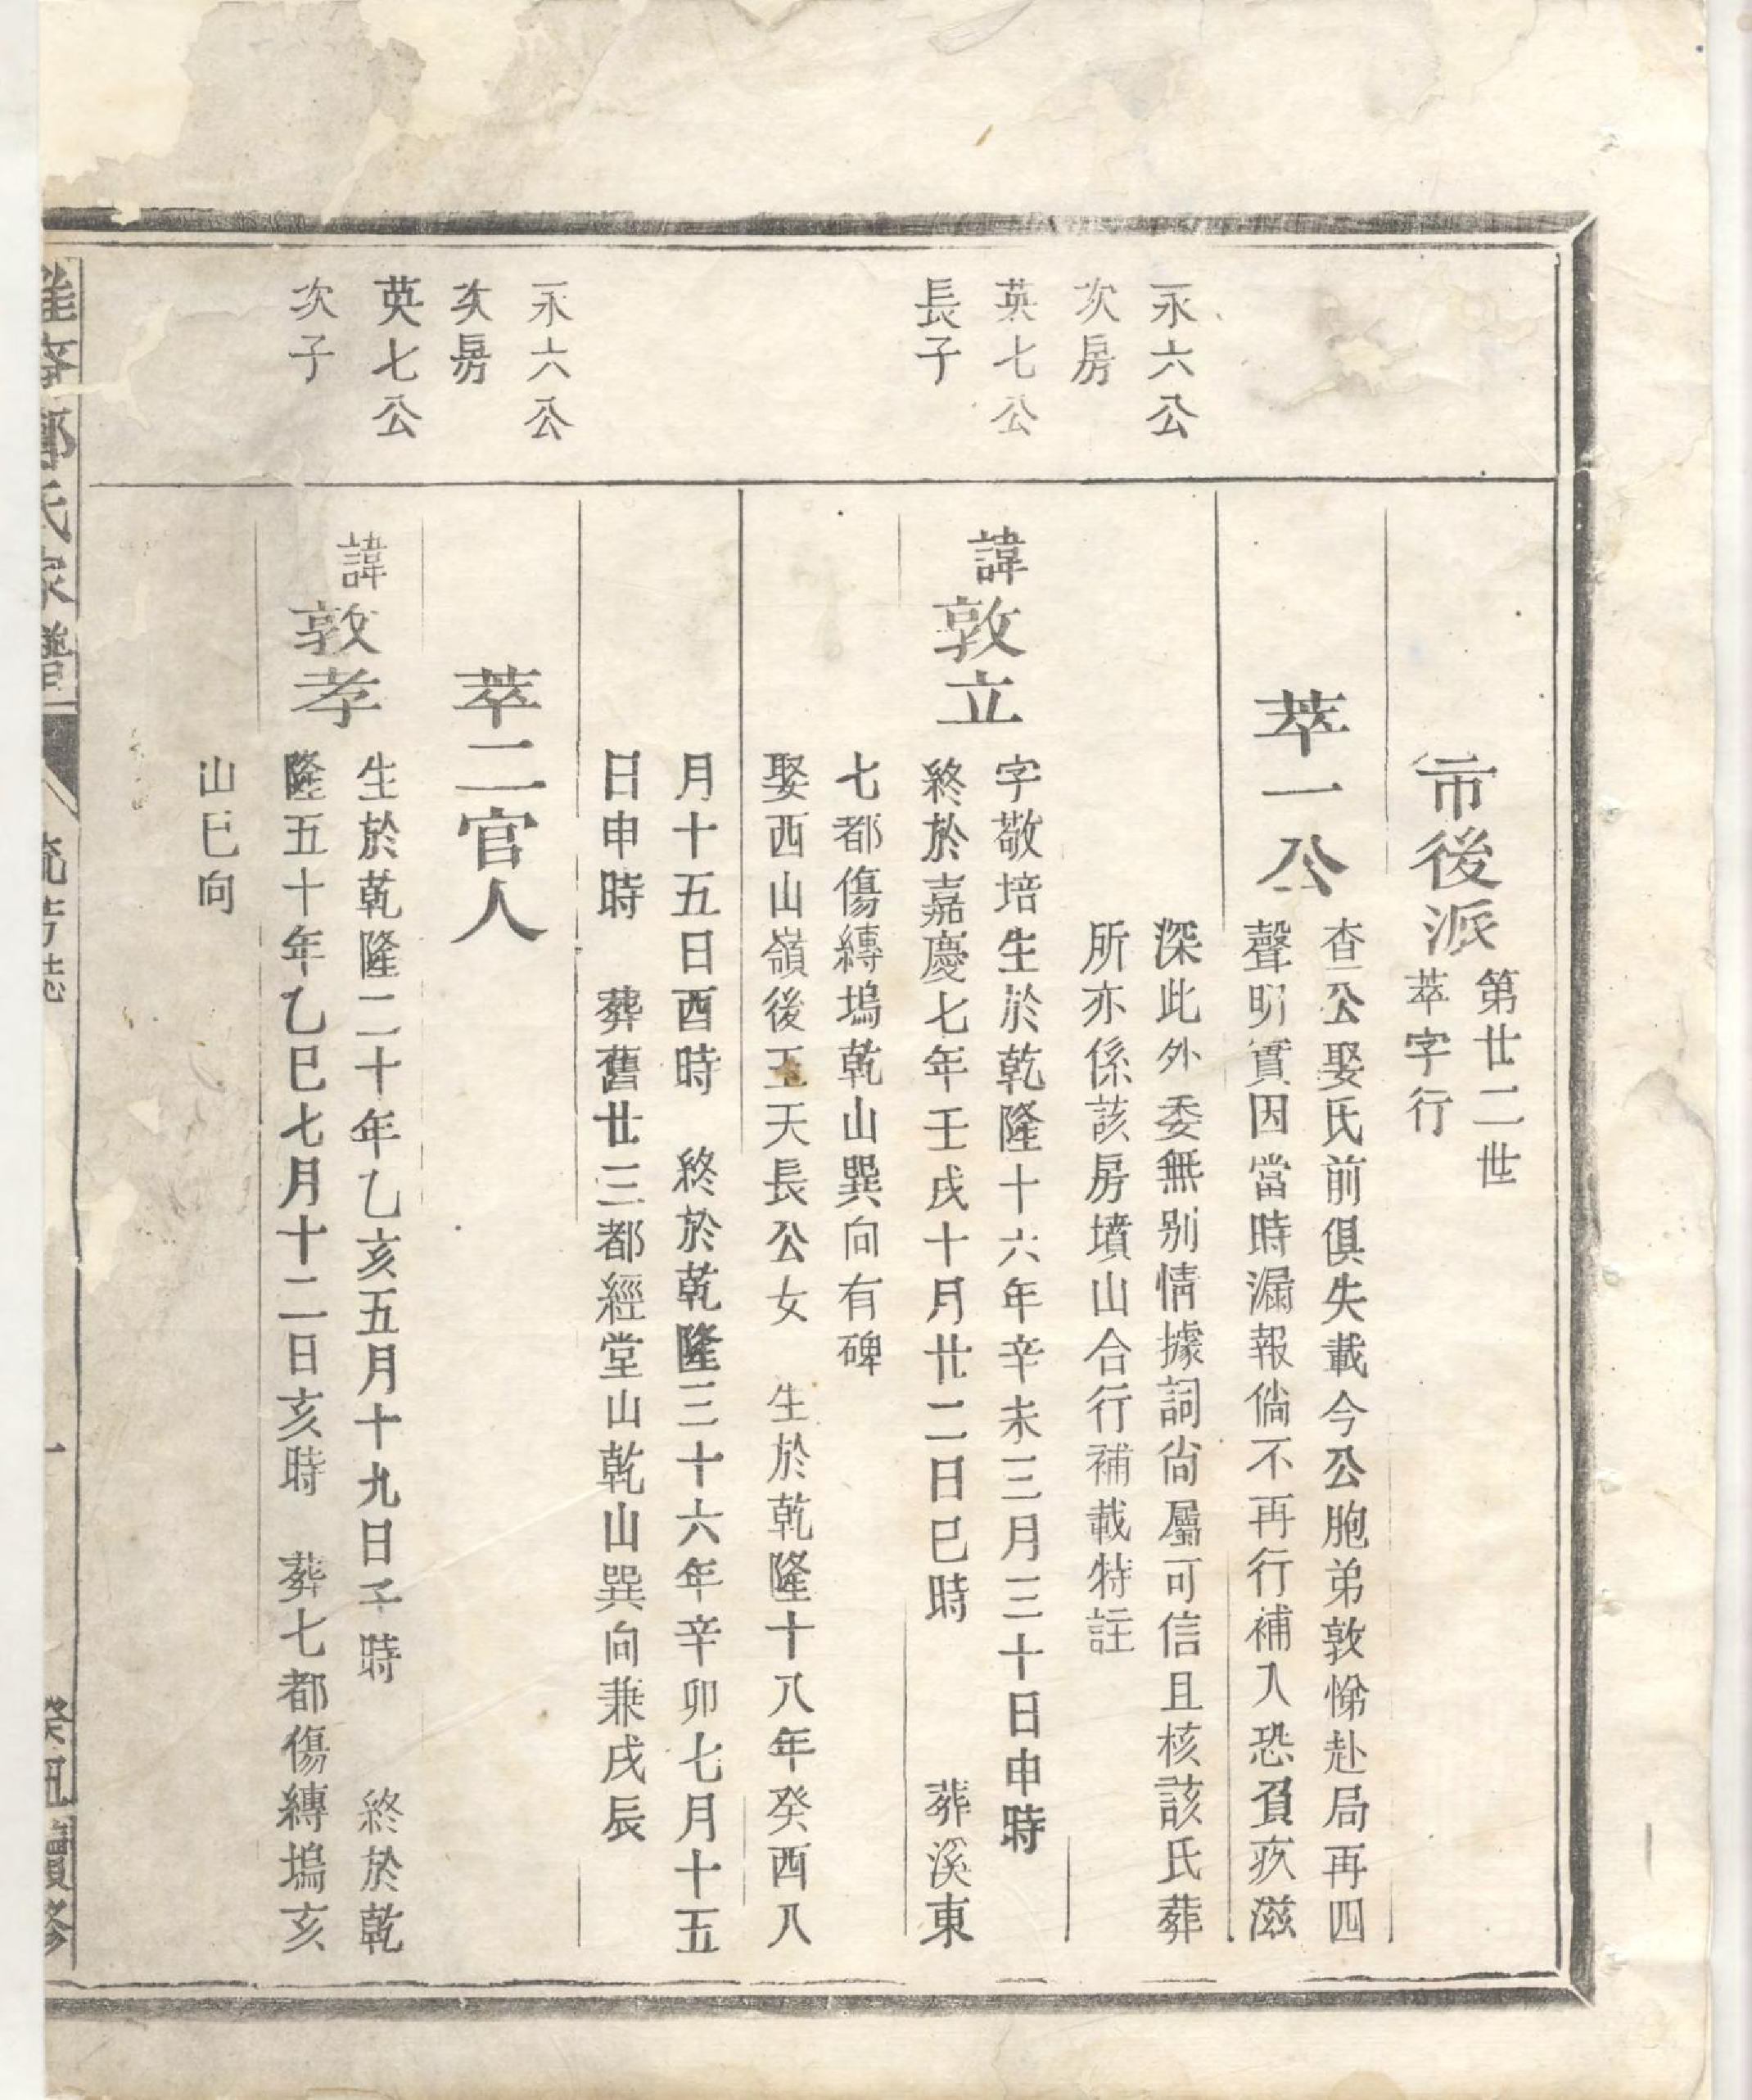 市後派
第廿二世
萃字行
萃一公
查公娶氏前俱失載今公胞弟敦悌赴局再四
聲明實因當時漏報倘不再行補入恐負疚滋
深此外委無別情據詞尙屬可信且核該氏葬
所亦係該房墳山合行補載特註
永六公
次房
英七公
長子
諱敦立
字敬培生於乾隆十六年辛未三月三十日申時
終於嘉慶七年壬戌十月廿二日巳時 葬溪東
七都傷縳塢乾山巽向有碑
娶西山嶺後王天長公女 生於乾隆十八年癸酉八
月十五日酉時 終於乾隆三十六年辛卯七月十五
日申時 葬舊廿三都經堂山乾山巽向兼戌辰
萃二官人
永六公
次房
英七公
次子
諱敦孝
生於乾隆二十年乙亥五月十九日子時 終於乾
隆五十年乙巳七月十二日亥時 葬七都傷縳塢亥
山巳向
氏家譜
續修